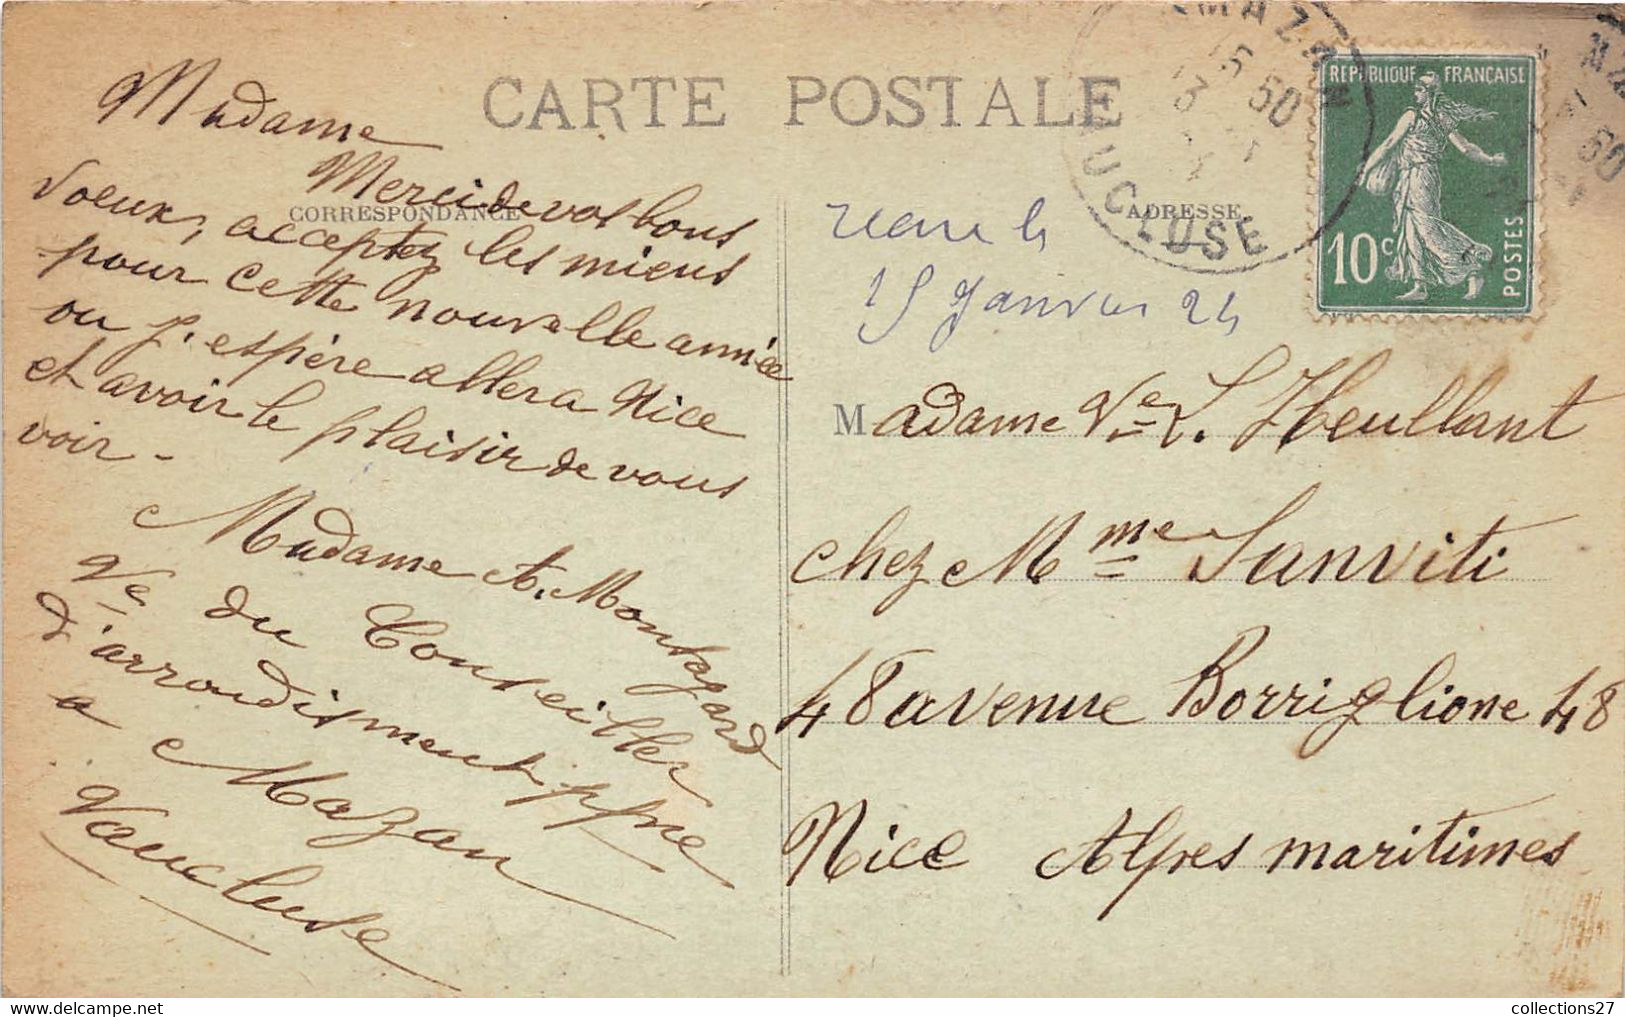 CARTE POSTALE
CORRESPONDANCE
Madame
Merci de vos bons
voeux, acceptez les miens
pour cette nouvelle année
ou j'espère aller a Nice
et avoir le plaisir de vous
voir -
Madame A. Montagard
Ve du Conseiller
d'arrondisment
a Mazan
Vaucluse
ADRESSE
15 Janvier 24
Madame Ve L. Heullant
chez Mme Sanviti
48 avenue Borriglione 48
Nice Alpes maritimes
REPUBLIQUE FRANÇAISE
10c
POSTES
MAZAN
VAUCLUSE
collections27